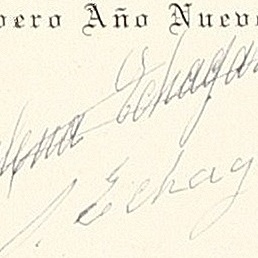 pero Año Nuevo
lena Echaga
J. Echag